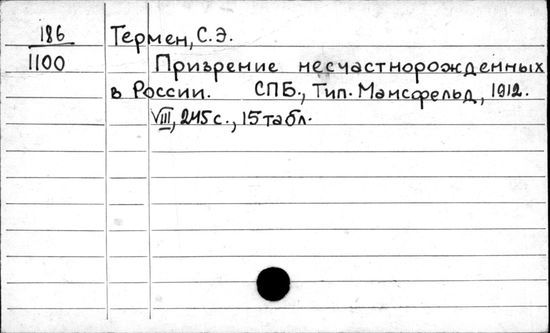 186 Термен, С.Э.
1100 Призрение несчастнорожденных
в России. СПБ., Тип. Мансфельд, 1912.
VIII, 245 с., 15 табл.